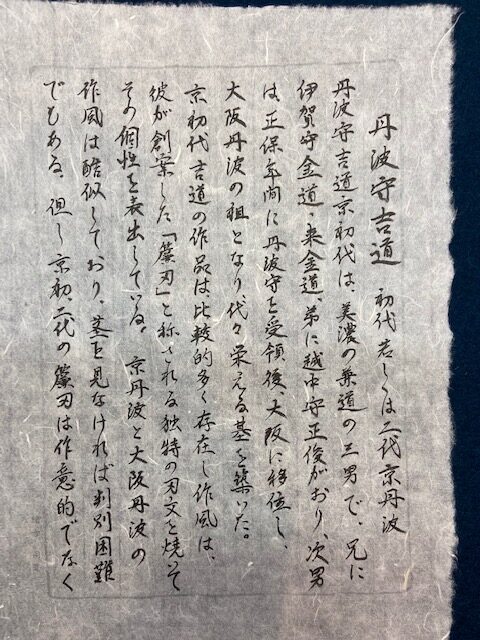 丹波守吉道　初代若しくは二代京丹波
丹波守吉道京初代は、美濃の兼道の三男で、兄に
伊賀守金道・来金道、弟に越中守正俊がおり、次男
は、正保年間に丹波守を受領後、大阪に移住し、
大阪丹波の祖となり代々栄える基を築いた。
京初代吉道の作品は、比較的多く存在し作風は、
彼が創案した「簾刃」と称される独特の刃文を焼いて
その個性を表出している。 京丹波と大阪丹波の
作風は酷似しており、茎を見なければ判別困難
でもある。但し京初、二代の簾刃は作意的でなく